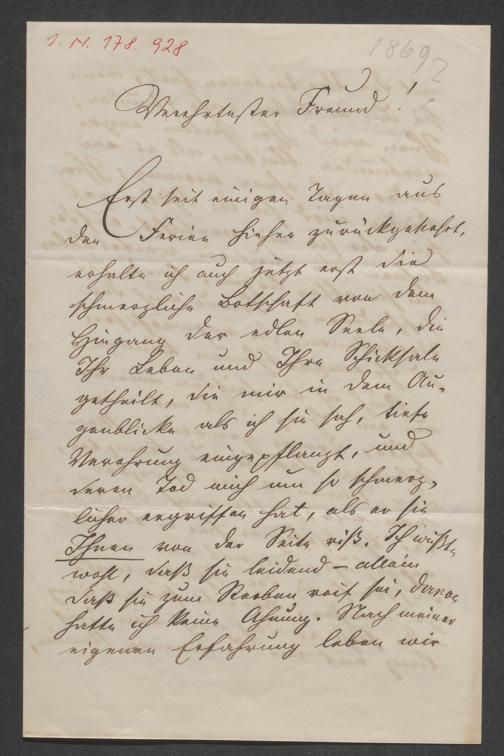 I. N. 178.928
1869
Verehrtester Freund!
Erst seit einigen Tagen aus
den Ferien hieher zurückgekehrt,
erhalte ich auch jetzt erst die
schmerzliche Botschaft von dem
Hingang der edlen Seele, die
Ihr Leben und Ihre Schicksale
getheilt, die mir in dem Au-
genblicke als ich sie sah, tiefe
Verehrung eingepflanzt, und
deren Tod mich um so schmerz-
licher ergriffen hat, als er sie
Ihnen von der Seite riß. Ich wußte
wohl, daß sie leidend – allein
daß sie zum Sterben reif sei, davon
hatte ich keine Ahnung. Nach meiner
eigenen Erfahrung leben wir